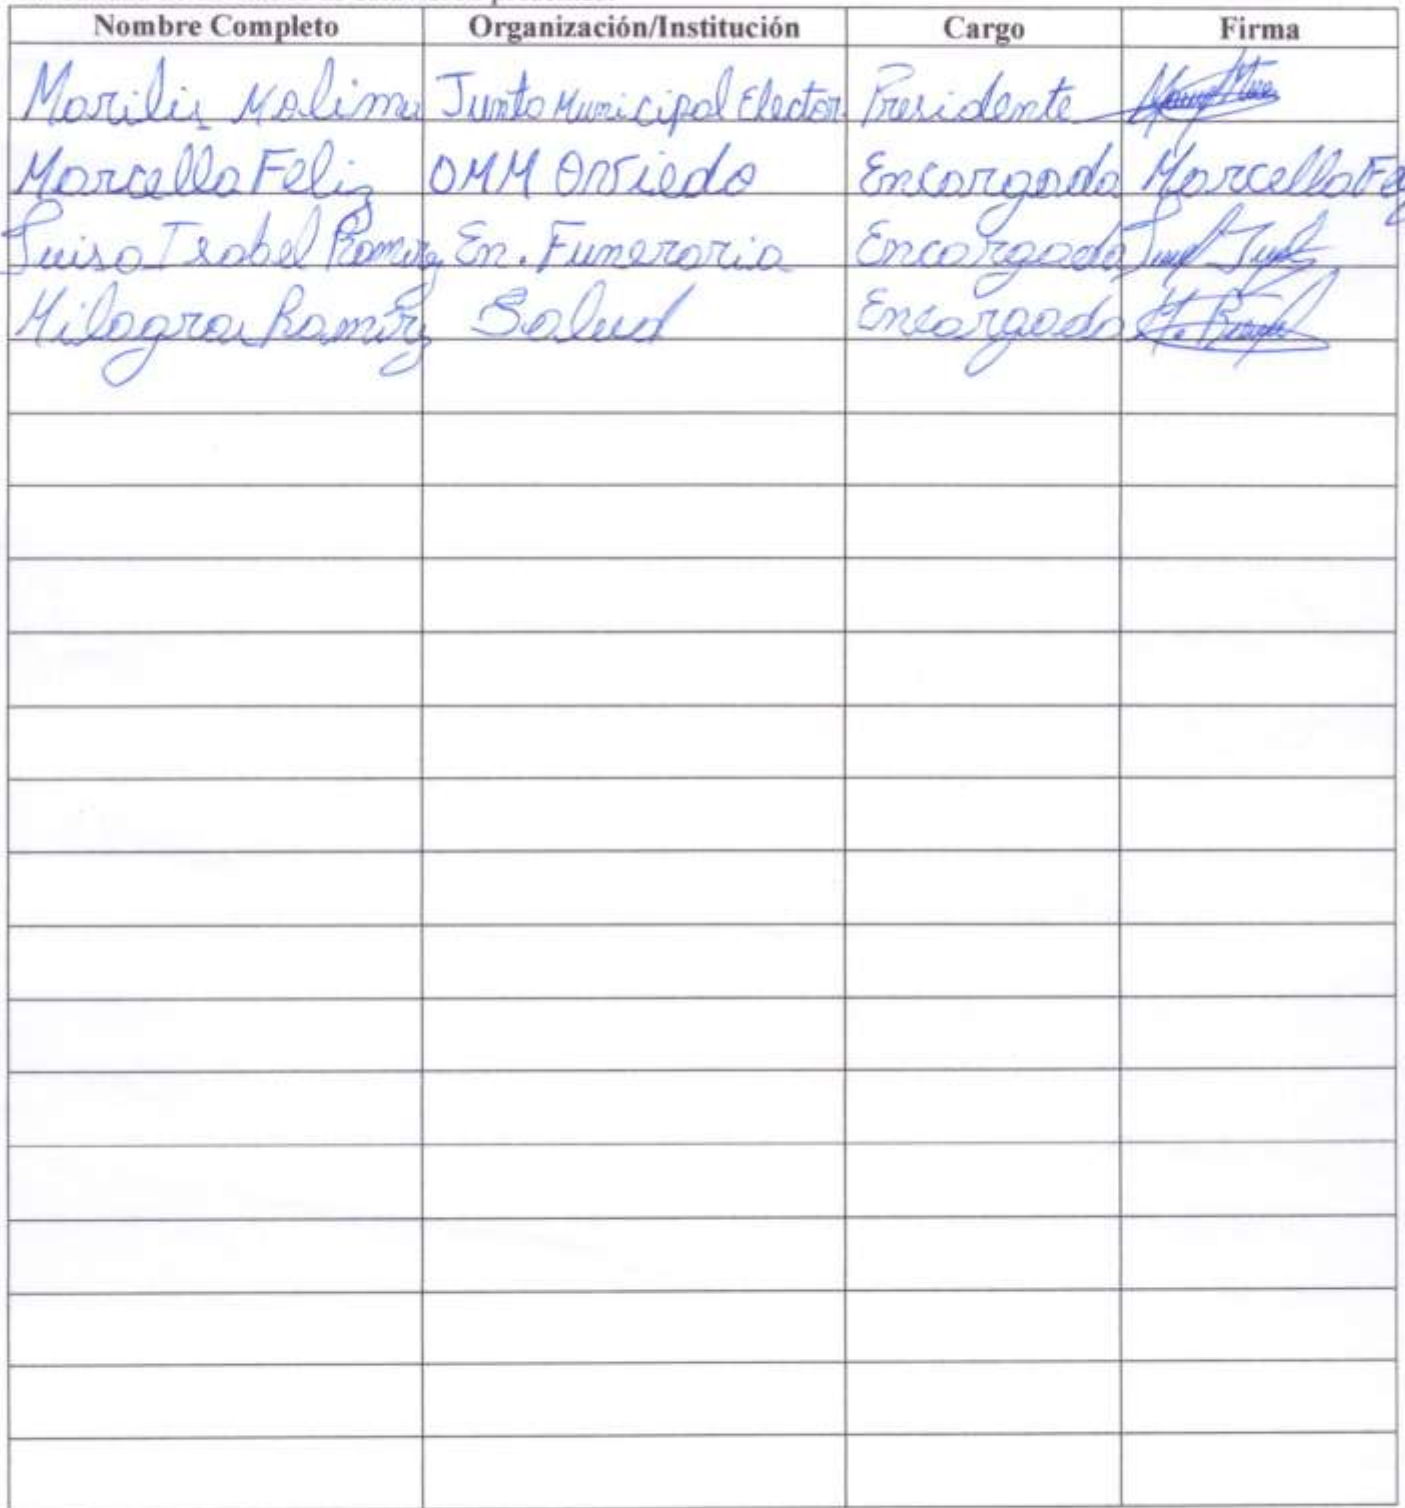 Nombre Completo Organización/Institución Cargo Firma
Marilis Molina Junta Municipal Elector Presidente
Marcella Feliz OMM Oviedo Encargada Marcella Fe
Luisa Isabel Ramirez En. Funeraria Encargada
Milagros Ramirez Salud Encargada